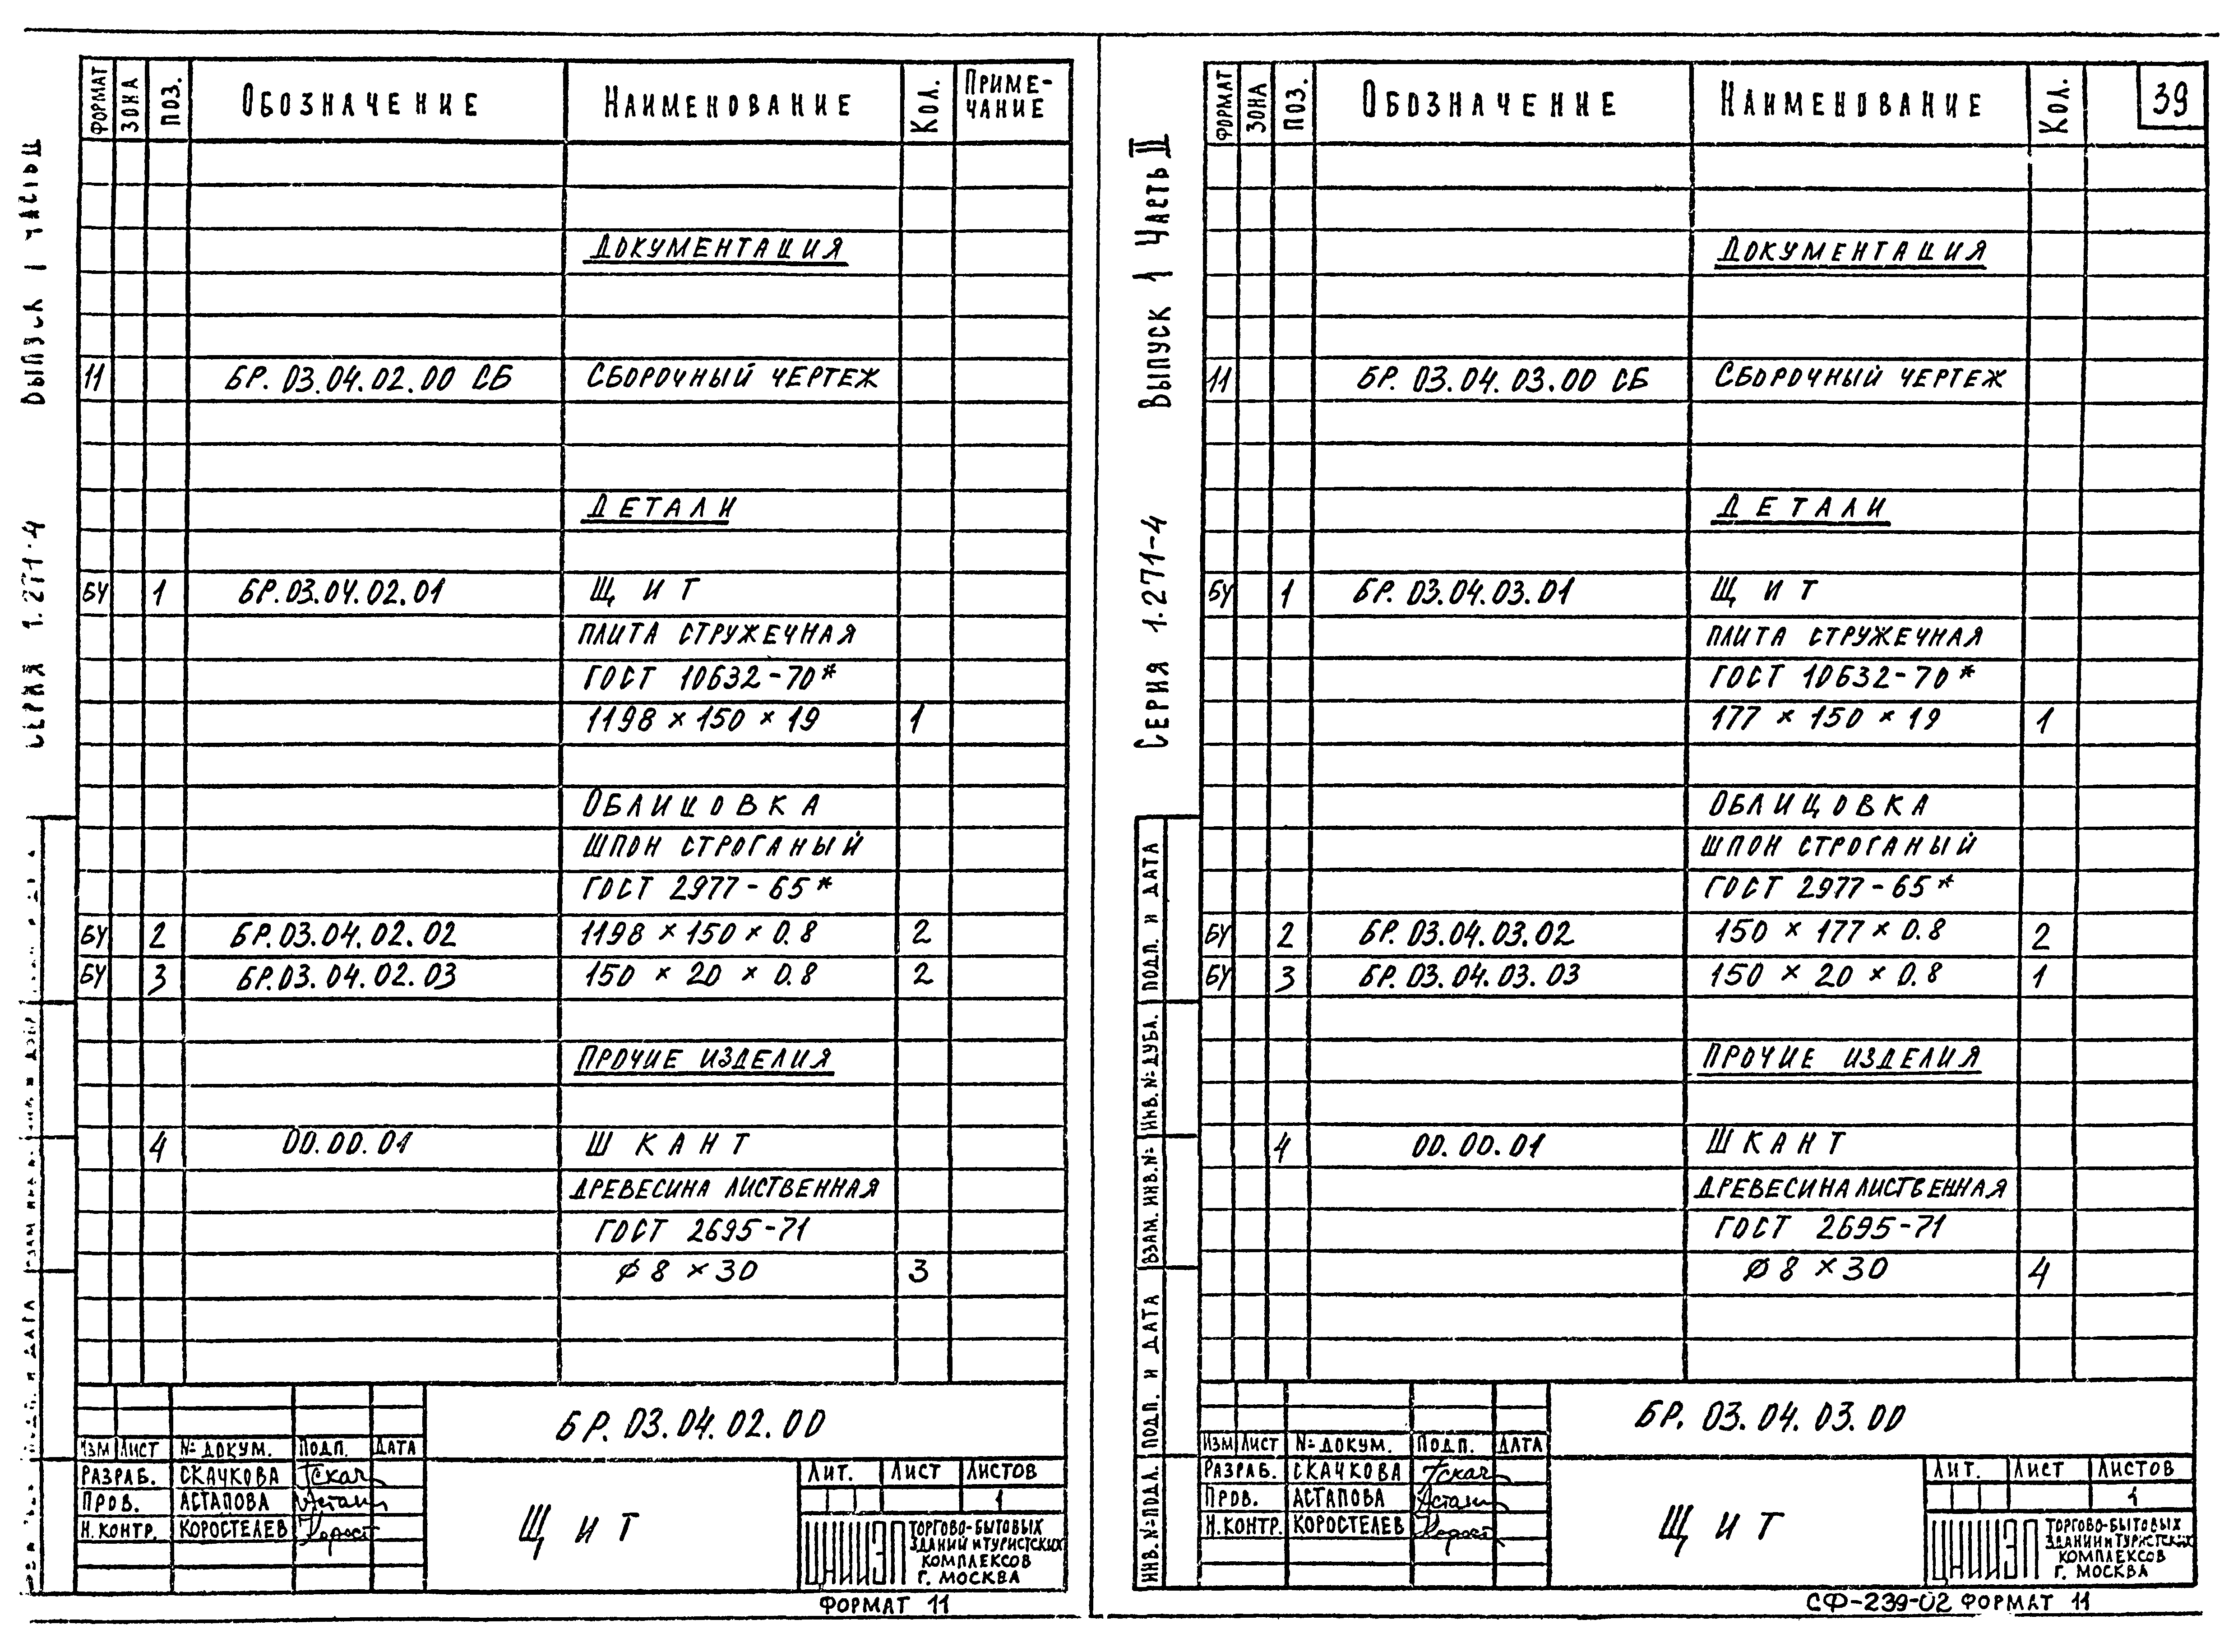 СЕРИЯ 1.271-4 ВЫПУСК 1 ЧАСТЬ II
ФОРМАТ ЗОНА ПОЗ. ОБОЗНАЧЕНИЕ НАИМЕНОВАНИЕ КОЛ. ПРИМЕ-
ЧАНИЕ
ДОКУМЕНТАЦИЯ
11 БР. 03.04.02.00 СБ СБОРОЧНЫЙ ЧЕРТЕЖ
ДЕТАЛИ
БЧ 1 БР.03.04.02.01 ЩИТ
ПЛИТА СТРУЖЕЧНАЯ
ГОСТ 10632-70*
1198 × 150 × 19 1
ОБЛИЦОВКА
ШПОН СТРОГАНЫЙ
ГОСТ 2977-65*
БЧ 2 БР.03.04.02.02 1198 × 150 × 0.8 2
БЧ 3 БР.03.04.02.03 150 × 20 × 0.8 2
ПРОЧИЕ ИЗДЕЛИЯ
4 00.00.01 ШКАНТ
ДРЕВЕСИНА ЛИСТВЕННАЯ
ГОСТ 2695-71
ф 8 × 30 3
БР. 03.04.02.00
ИЗМ ЛИСТ № ДОКУМ. ПОДП. ДАТА
РАЗРАБ. СКАЧКОВА
ПРОВ. АСТАПОВА
Н.КОНТР. КОРОСТЕЛЕВ
ЩИТ
ЛИТ. ЛИСТ ЛИСТОВ
1
ЦНИИЭП ТОРГОВО-БЫТОВЫХ
ЗДАНИЙ И ТУРИСТСКИХ
КОМПЛЕКСОВ
Г. МОСКВА
ФОРМАТ 11
СЕРИЯ 1.271-4 ВЫПУСК 1 ЧАСТЬ II
ФОРМАТ ЗОНА ПОЗ. ОБОЗНАЧЕНИЕ НАИМЕНОВАНИЕ КОЛ. 39
ДОКУМЕНТАЦИЯ
11 БР. 03.04.03.00 СБ СБОРОЧНЫЙ ЧЕРТЕЖ
ДЕТАЛИ
БЧ 1 БР. 03.04.03.01 ЩИТ
ПЛИТА СТРУЖЕЧНАЯ
ГОСТ 10632-70*
177 × 150 × 19 1
ОБЛИЦОВКА
ШПОН СТРОГАНЫЙ
ГОСТ 2977-65*
БЧ 2 БР. 03.04.03.02 150 × 177 × 0.8 2
БЧ 3 БР. 03.04.03.03 150 × 20 × 0.8 1
ПРОЧИЕ ИЗДЕЛИЯ
4 00.00.01 ШКАНТ
ДРЕВЕСИНА ЛИСТВЕННАЯ
ГОСТ 2695-71
ф 8 × 30 4
ИНВ.№ПОДЛ. ПОДП. И ДАТА ВЗАМ. ИНВ.№ ИНВ.№ДУБЛ. ПОДП. И ДАТА
БР. 03.04.03.00
ИЗМ ЛИСТ № ДОКУМ. ПОДП. ДАТА
РАЗРАБ. СКАЧКОВА
ПРОВ. АСТАПОВА
Н.КОНТР. КОРОСТЕЛЕВ
ЩИТ
ЛИТ. ЛИСТ ЛИСТОВ
1
ЦНИИЭП ТОРГОВО-БЫТОВЫХ
ЗДАНИЙ И ТУРИСТСКИХ
КОМПЛЕКСОВ
Г. МОСКВА
СФ-239-02 ФОРМАТ 11